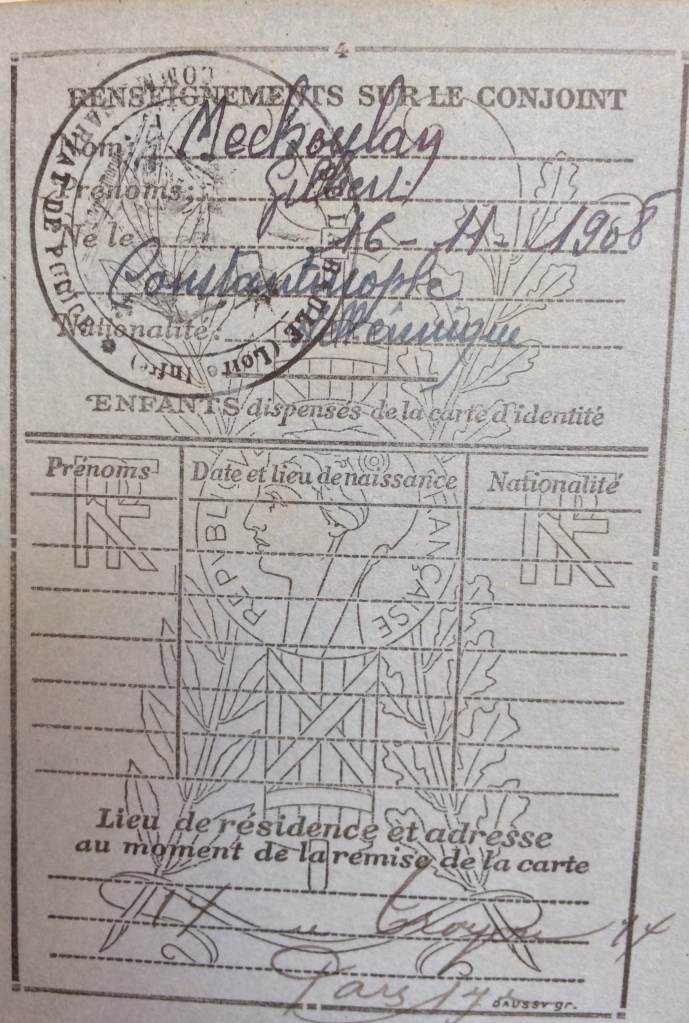 4
RENSEIGNEMENTS SUR LE CONJOINT
Nom: Mechoulay
Prénoms: Gilbert
Né le 16-11-1908
Constantinople
Nationalité: Hellénique
COMMISSARIAT DE POLICE * LA BAULE (Loire Infre)
ENFANTS dispensés de la carte d'identité
Prénoms Date et lieu de naissance Nationalité
RF RF
RÉPUBLIQUE FRANÇAISE
Lieu de résidence et adresse
au moment de la remise de la carte
17
Paris 17e
DAUSSY gr.